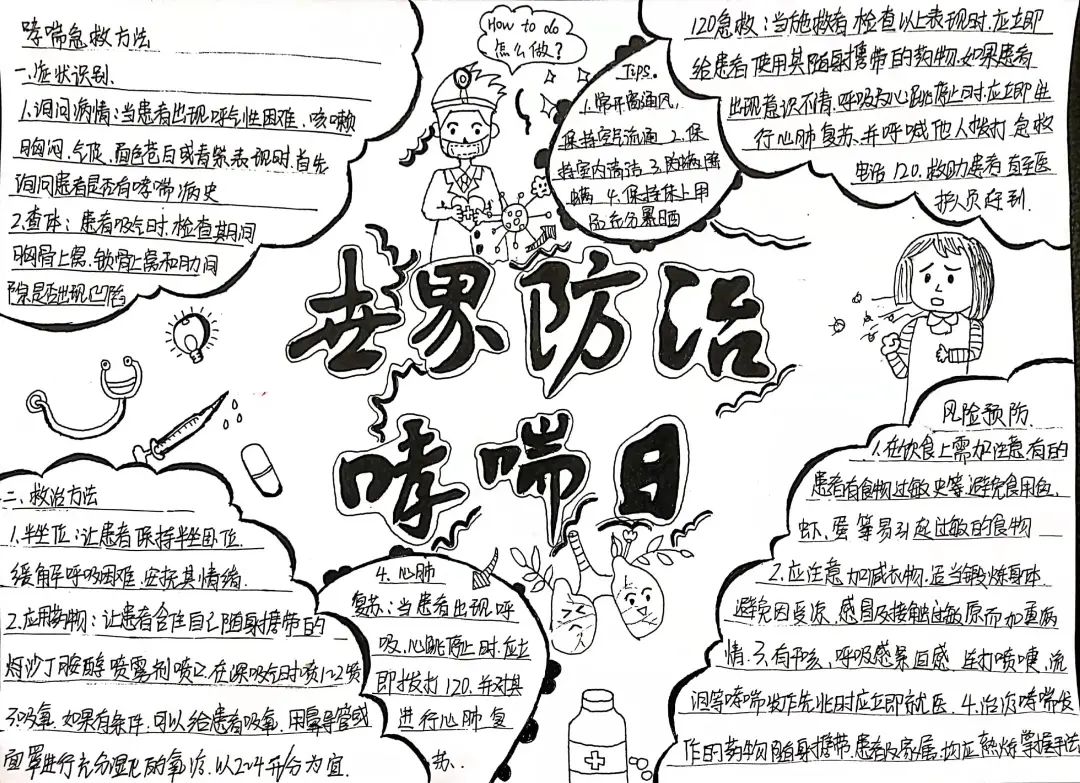 哮喘急救方法
一.症状识别.
1.询问病情:当患者出现呼气性困难、咳嗽
胸闷、气促、面色苍白或青紫表现时.首先
询问患者是否有哮喘病史
2.查体:患者吸气时.检查其期间
胸骨上窝.锁骨上窝和肋间
隙是否出现凹陷
How to do
怎么做?
Tips.
1.常开窗通风.
保持空气流通 2.保
持室内清洁 3.防螨
螨 4.保持床上用
品充分暴晒
120急救:当施救者.检查以上表现时.应立即
给患者使用其随身携带的药物.如果患者
出现意识不清.呼吸及心跳停止时.应立即进
行心肺复苏.并呼喊他人拨打急救
电话120.救助患者直至医
护人员赶到.
世界防治
哮喘日
二.救治方法
1.半坐位:让患者保持半坐卧位.
缓解呼吸困难.安抚其情绪.
2.应用药物:让患者含住自己随身携带的
沙丁胺醇喷雾剂喷口.在深吸气时喷1~2喷
3.吸氧.如果有条件.可以给患者吸氧.用鼻导管或
面罩进行充分湿化的氧疗.以2~4升/分为宜.
4.心肺
复苏:当患者出现呼
吸、心跳停止时.应立
即拨打120.并对其
进行心肺复
苏.
风险预防.
1.在饮食上需加注意有的
患者有食物过敏史等.避免食用鱼.
虾、蛋等易引起过敏的食物
2.应注意加减衣物.适当锻炼身体
避免因受凉、感冒及接触过敏原而加重病
情.3.有干咳、呼吸感紧迫感、连打喷嚏、流
泪等哮喘发作先兆时应立即就医.4.治疗哮喘发
作的药物随身携带.患者及家属.均应熟练掌握手法